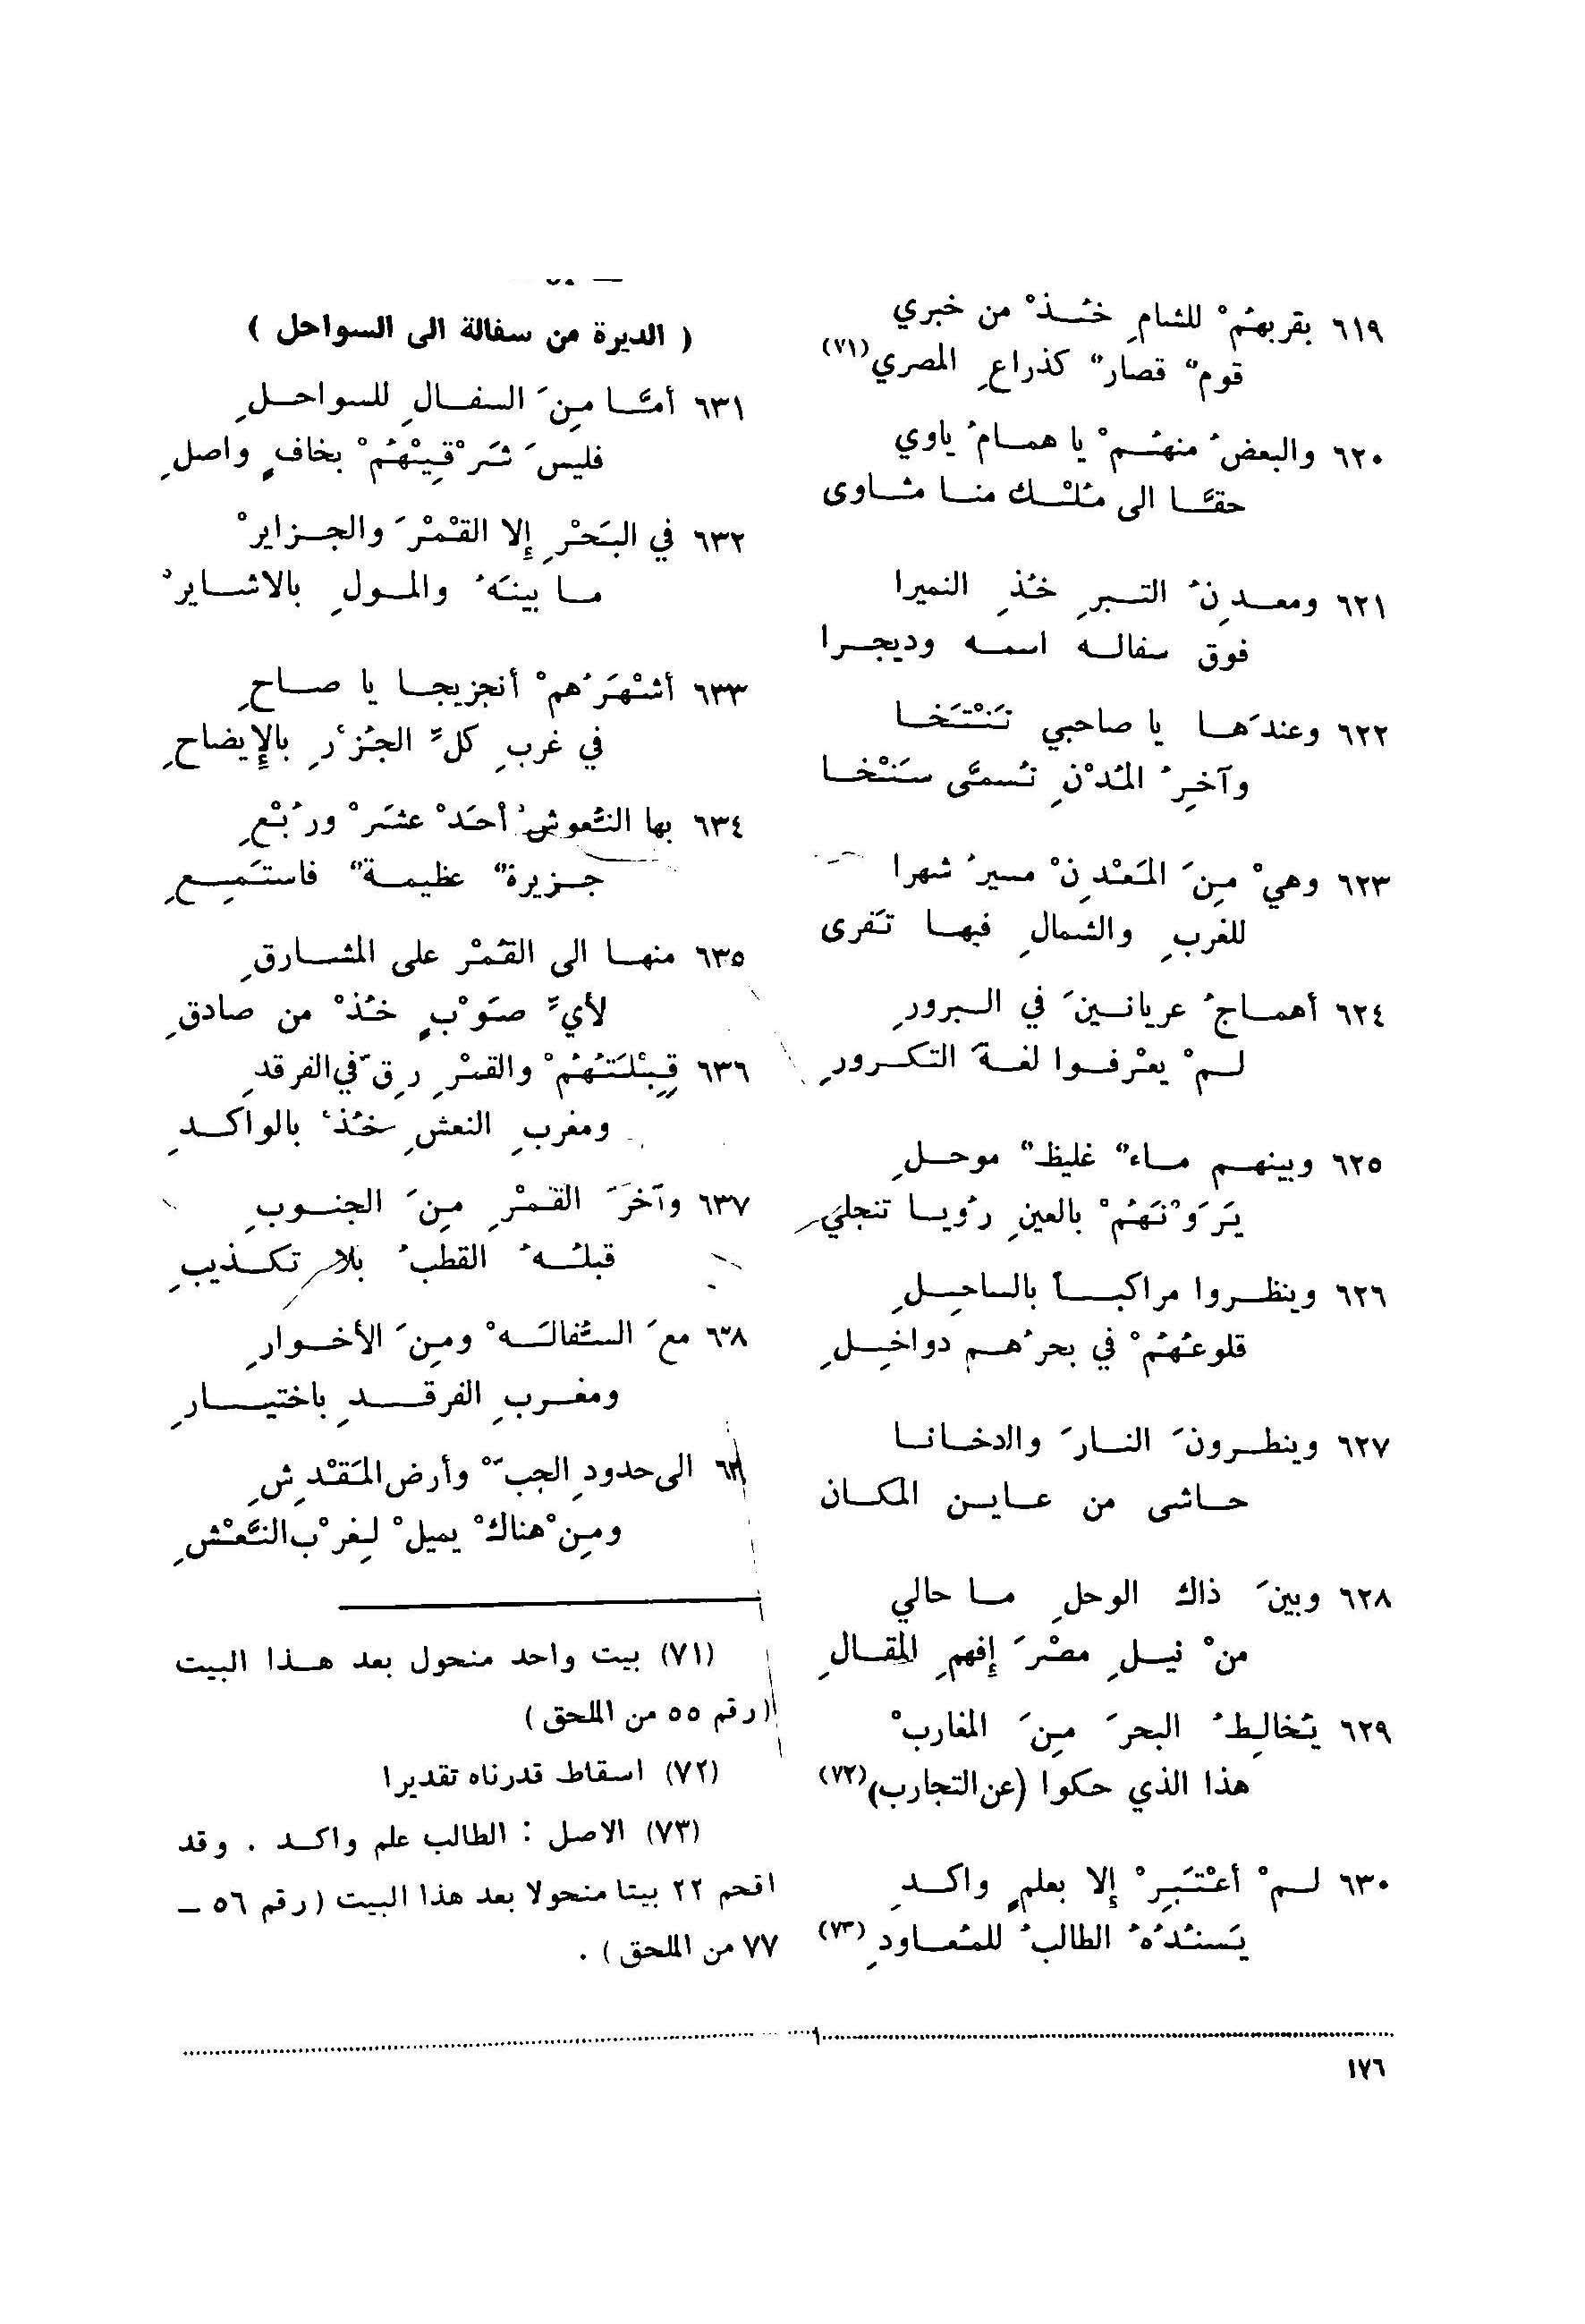 ٦١٩ بقربهُمْ للشامِ خُذْ من خبري
قومٌ قصارٌ كذراعِ المصري(٧١)
٦٢٠ والبعضُ منهُمْ يا همامُ ياوي
حقَّا الى مُلْك منا مشاوى
٦٢١ ومعدِنُ التبرِ خُذِ النميرا
فوق سفاله اسمه وديجرا
٦٢٢ وعندَها يا صاحبي تَنْتَخا
وآخِرُ المُدْنِ تُسمَّى سَنْخا
٦٢٣ وهيْ مِنَ المَعْدِنْ مسيرُ شهرا
للغربِ والشمالِ فيها تَفرى
٦٢٤ أهماجُ عريانينَ في البرورِ
لمْ يعْرفوا لغةَ التكرورِ
٦٢٥ وبينهم ماءٌ غليظٌ موحلِ
يَرَوْنَهُمْ بالعينِ رُؤيا تنجلي
٦٢٦ وينظروا مراكباً بالساحِلِ
قلوعُهُمْ في بحرُهم دواخِلِ
٦٢٧ وينطرونَ النارَ والدخانا
حاشى من عاين المكان
٦٢٨ وبينَ ذاك الوحلِ ما حالي
منْ نيلِ مصْرَ إفهمِ المقالِ
٦٢٩ يُخالِطُ البحرَ مِنَ المغاربْ
هذا الذي حكوا (عن التجارب)(٧٢)
٦٣٠ لمْ أعْتَبِرْ إلا بعلمٍ واكدِ
يَسنُدُهُ الطالبُ للمُعاودِ(٧٣)
( الديرة من سفالة الى السواحل )
٦٣١ أمَّا مِنَ السفالِ للسواحلِ
فليسَ شَرْقِيْهُمْ بخافٍ واصلِ
٦٣٢ في البَحْرِ إلا القُمْرَ والجزايرْ
ما بينَهُ والمولِ بالاشايرْ
٦٣٣ أشْهَرُهمْ أنجزيجا يا صاحِ
في غربِ كلِّ الجُزْرِ بالإيضاحِ
٦٣٤ بها النُّعوشُ أحَدْ عشَرْ ورُبْعِ
جزيرةٌ عظيمةٌ فاستَمِعِ
٦٣٥ منها الى القُمْرِ على المشارقِ
لأيِّ صَوْبٍ خُذْ من صادقِ
٦٣٦ قِبْلَتُهُمْ والقمْرِ رِقّ في الفرقدِ
ومغربِ النعشِ خُذْ بالواكدِ
٦٣٧ وآخرَ القُمْرِ مِنَ الجنوبِ
قبلُهُ القطبُ بلا تكذيبِ
٦٣٨ معَ السُّفالَهْ ومِنَ الأخوارِ
ومغربِ الفرقدِ باختيارِ
الى حدودِ الجبّْ وأرض المَقْدِشِ
ومِنْ هناكْ يميلْ لِغرْب النَّعْشِ
(٧١) بيت واحد منحول بعد هذا البيت
(رقم ٥٥ من الملحق)
(٧٢) اسقاط قدرناه تقديرا
(٧٣) الاصل : الطالب علم واكد . وقد
اقحم ٢٢ بيتا منحولا بعد هذا البيت (رقم ٥٦ –
٧٧ من الملحق) .
١٧٦